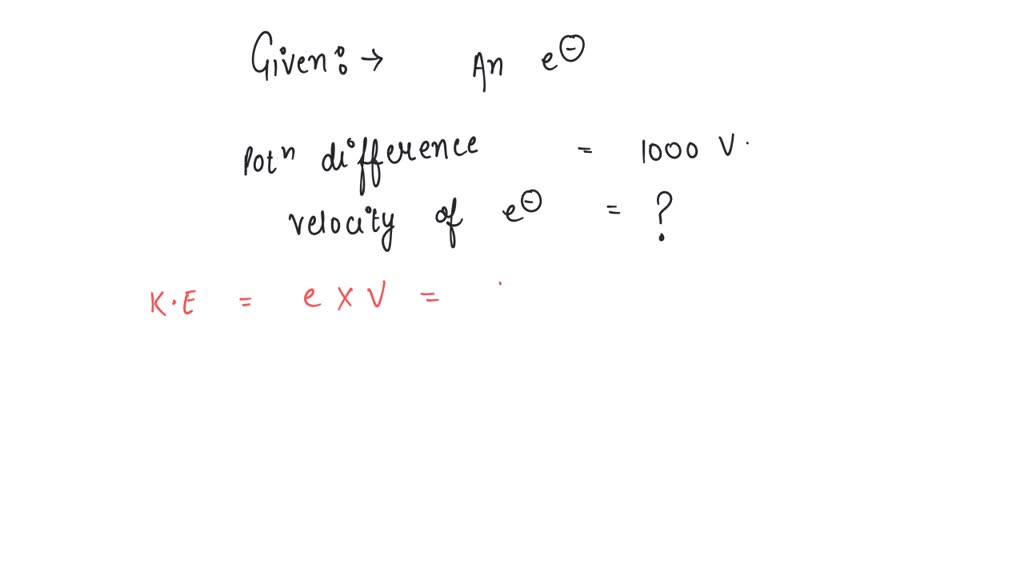 Given: → An e⊖
Potⁿ difference = 1000 V.
velocity of e⊖ = ?
K.E = e X V =